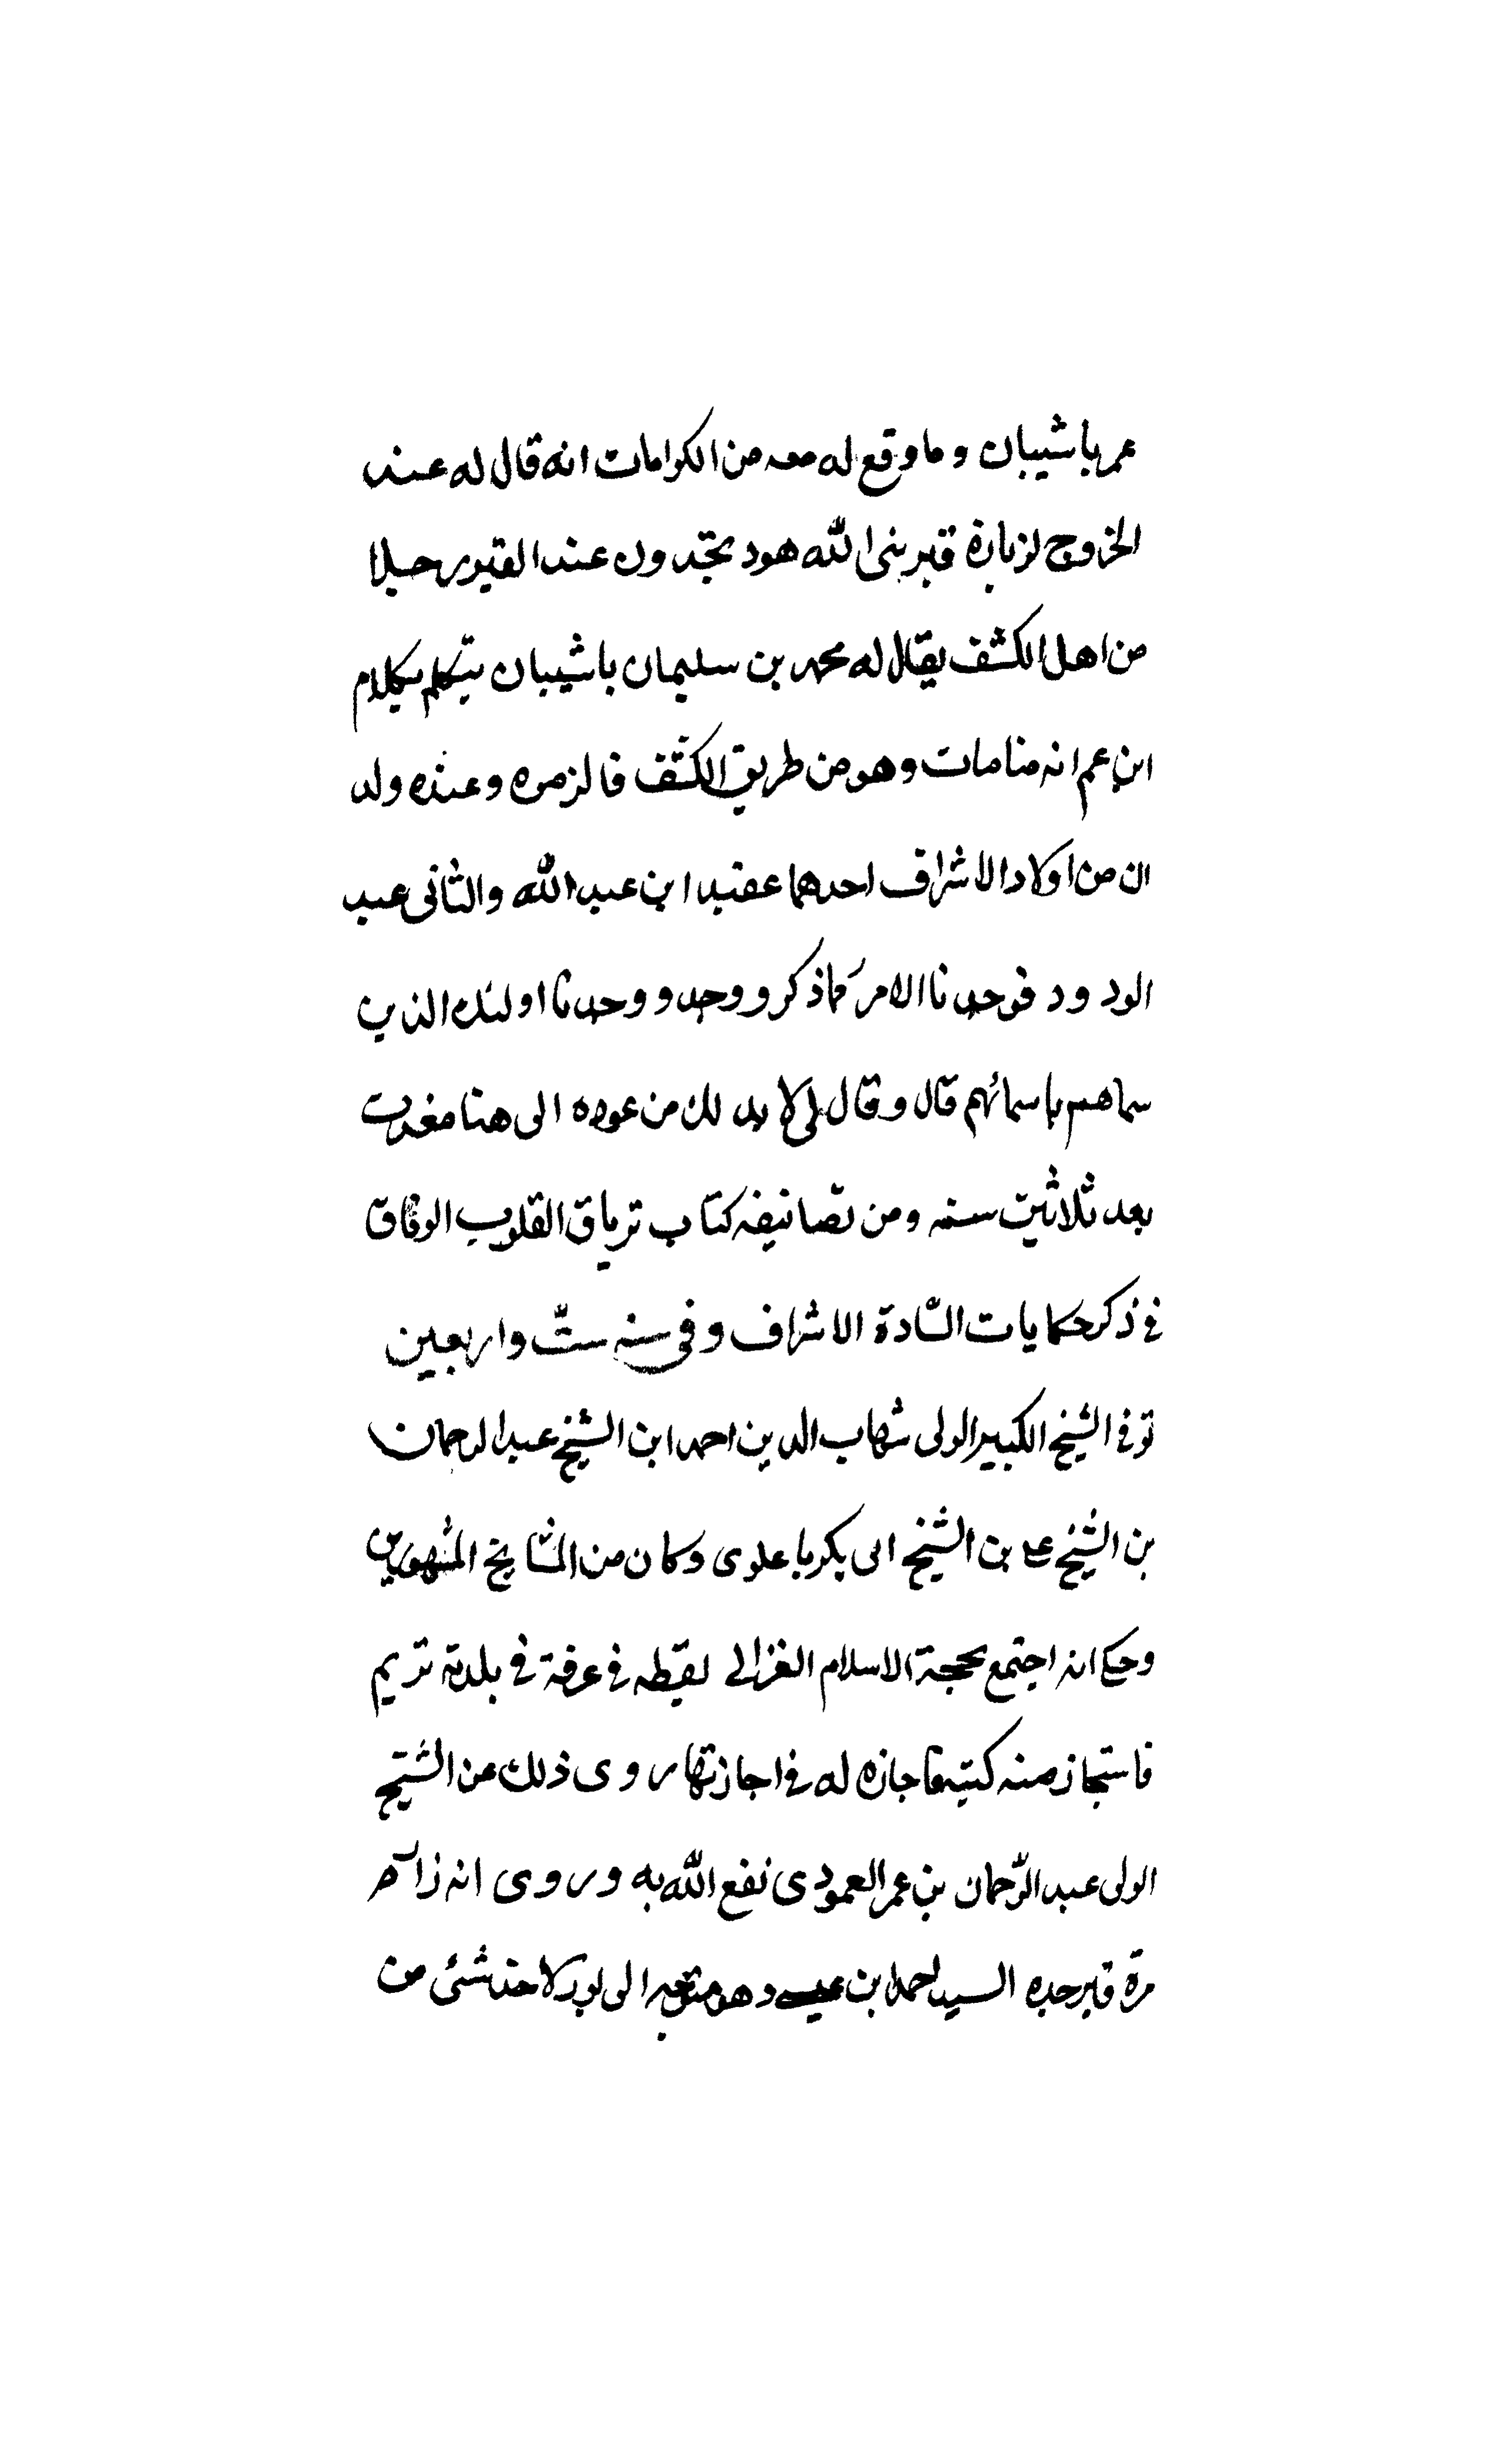 عمر باشيبان وما وقع له معه من الكرامات انه قال له عند
الخروج لزيارة قبر بنى الله هود تجدون عند القبر رجلا
من اهل الكشف يقال له محمد بن سليمان باشيبان يتكلم بكلام
ابن عم انه منامات وهو من طريق الكشف فالزموه وعنده ولد
ان من اولاد الاشراف احدهما عقيد ابن عبد الله والثانى عبد
الودود فوجدنا الامر كما ذكر ووجد ووجدنا اولئك الذين
سماهم باسمائهم قال وقال لى لا بد لك من عوده الى هنا
بعد ثلاثين سنه ومن تصانيفه كتاب ترياق القلوب الوفاق
فى ذكر حكايات السّادة الاشراف وفى سنه ستّ واربعين
توفى الشيخ الكبير الولى شهاب الدين احمد ابن الشيخ عبد الرحمان
بن الشيخ على بن الشيخ ابى بكر باعلوى وكان من المشايخ المشهورين
وحكى انه اجتمع بحجة الاسلام الغزالى يقظه فى غرفة فى بلدته تريم
فاستجاز منه كتبه فاجازه له فى اجازتها روى ذلك عن الشيخ
الولى عبد الرّحمان بن عمر العمودى نفع الله به وروى انه زار
مرة قبر جده السيد احمد ابن عيسى وهو متوجه الى شئى من